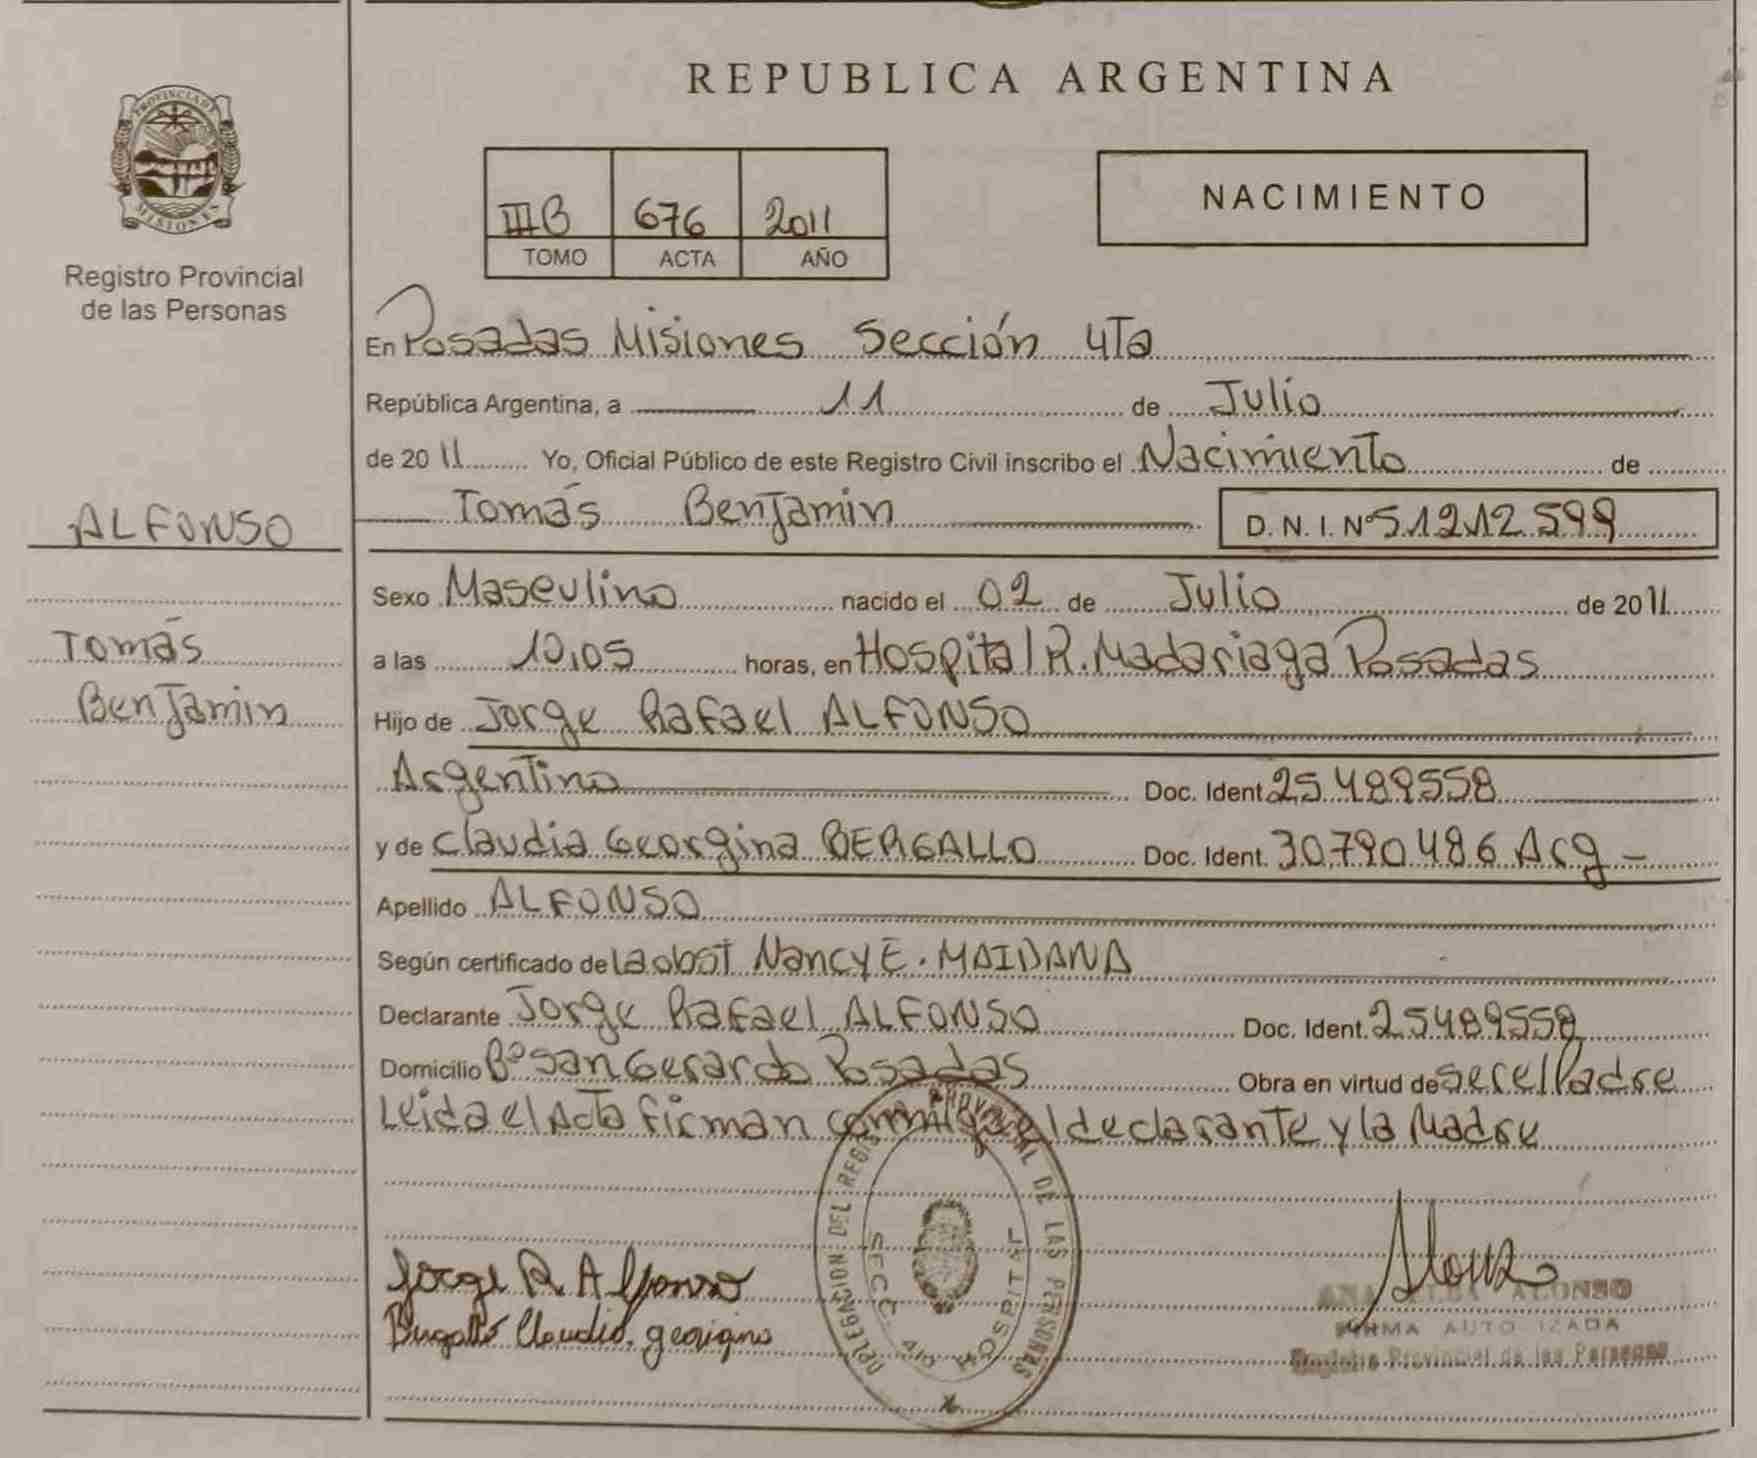 REPUBLICA ARGENTINA
PROVINCIA DE
MISIONES
Registro Provincial
de las Personas
IIIB 676 2011
TOMO ACTA AÑO
NACIMIENTO
En Posadas Misiones Sección 4Ta
República Argentina, a 11 de Julio
de 2011 Yo, Oficial Público de este Registro Civil inscribo el Nacimiento de
Tomás Benjamin D. N. I. Nº 51212599
ALFONSO
Tomás
Benjamin
Sexo Masculino nacido el 02 de Julio de 2011
a las 10,05 horas, en Hospital R. Madariaga Posadas
Hijo de Jorge Rafael ALFONSO
Argentino Doc. Ident. 25489558
y de Claudia Georgina BERGALLO Doc. Ident. 30790486 Arg -
Apellido ALFONSO
Según certificado de La obst Nancy E. MAIDANA
Declarante Jorge Rafael ALFONSO Doc. Ident. 25489558
Domicilio Bº San Gerardo Posadas Obra en virtud de Ser el Padre
Leida el Acta firman conmigo el declarante y la Madre
DELEGACION DEL REGISTRO PROVINCIAL DE LAS PERSONAS
SECC. HOSPITAL
Jorge R Alfonso
Claudia georgina
ALONSO
FIRMA AUTORIZADA
Registro Provincial de las Personas